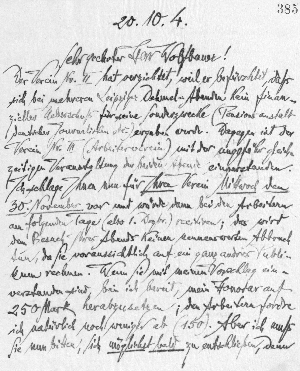 385
20.10.4.
Sehr geehrter Herr Wolfbauer!
Der Verein Nr. II hat verzichtet, weil er befürchtet, daß
sich bei mehreren Leipziger Dehmel-Abenden kein finan-
zieller Ueberschuß für seine Sonderzwecke (Pensionsanstalt
deutscher Journalisten etc) ergeben werde. Dagegen ist der
Verein Nr. III (Arbeiterverein) mit der ungefähr gleich-
zeitigen Veranstaltung der beiden Abende einverstanden.
Ich schlage Ihnen nun für Ihren Verein Mittwoch den
30. November vor und würde dann bei den Arbeitern
am folgenden Tage (also 1. Dezbr.) recitiren; das wird
dem Besuch Ihres Abends keinen nennenswerten Abbruch
tun, da sie voraussichtlich auf ein ganz andres Publi-
kum rechnen. Wenn Sie mit meinem Vorschlag einver-
standen sind, bin ich bereit, mein Honorar auf
250 Mark herabzusetzen; den Arbeitern fordre
ich natürlich noch weniger ab (150). Aber ich muß
Sie nun bitten, sich möglichst bald zu entschließen, denn